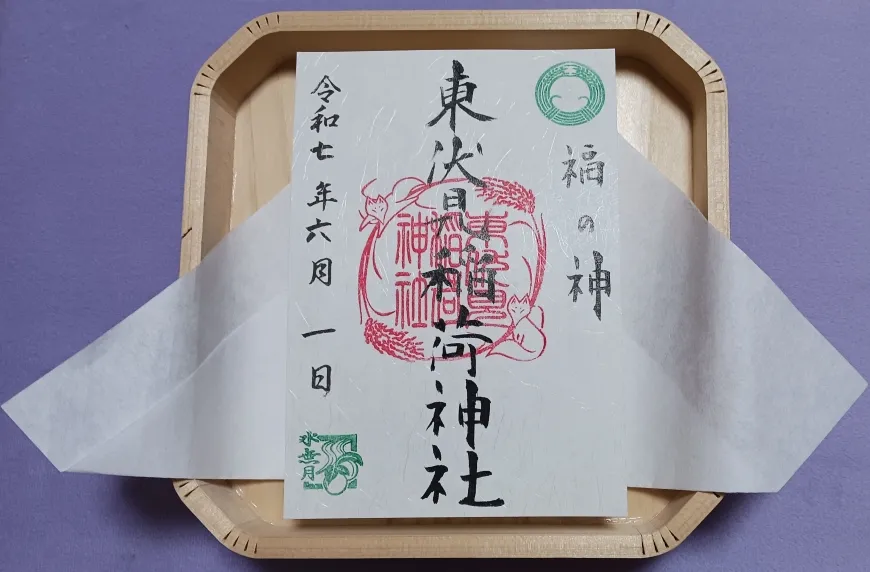 福の神
東伏見稲荷神社
東伏見
稲荷
神社
令和七年六月一日
水無月